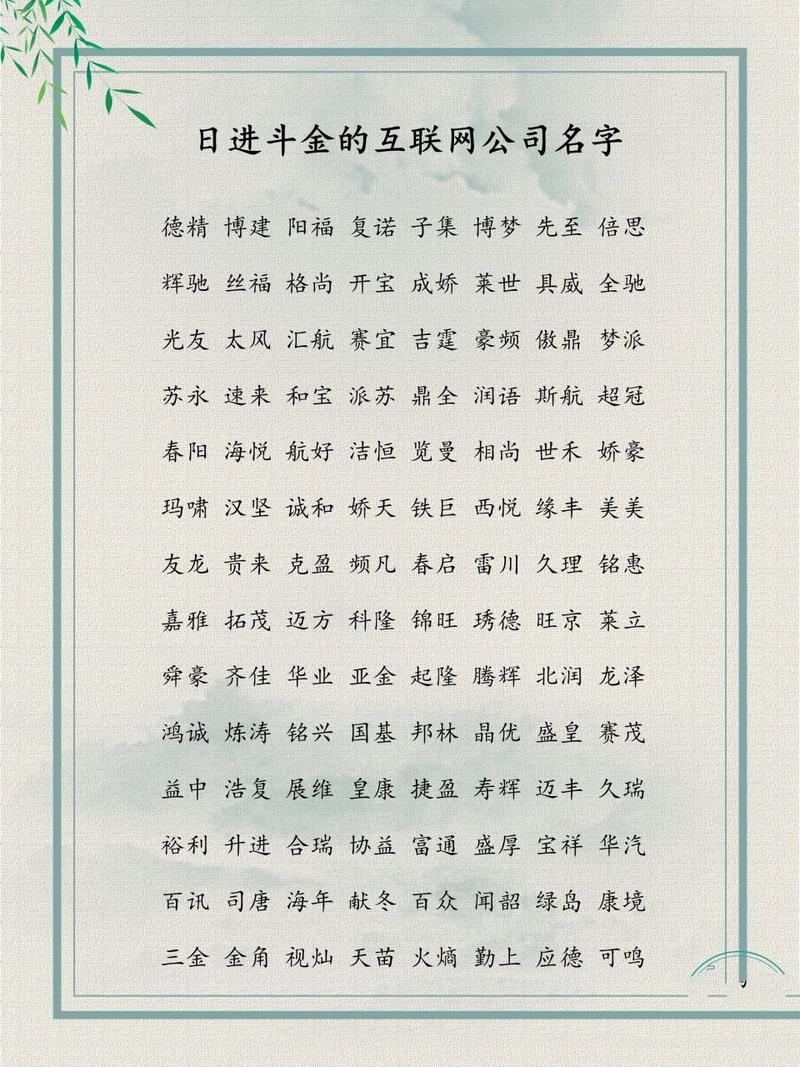 日进斗金的互联网公司名字
德精 博建 阳福 复诺 子集 博梦 先至 倍思
辉驰 丝福 格尚 开宝 成娇 莱世 具威 全驰
光友 太风 汇航 赛宜 吉霆 豪频 傲鼎 梦派
苏永 速来 和宝 派苏 鼎全 润语 斯航 超冠
春阳 海悦 航好 洁恒 览曼 相尚 世禾 娇豪
玛啸 汉坚 诚和 娇天 铁巨 西悦 缘丰 美美
友龙 贵来 克盈 频凡 春启 雷川 久理 铭惠
嘉雅 拓茂 迈方 科隆 锦旺 琇德 旺京 莱立
舜豪 齐佳 华业 亚金 起隆 腾辉 北润 龙泽
鸿诚 炼涛 铭兴 国基 邦林 晶优 盛皇 赛茂
益中 浩复 展维 皇康 捷盈 寿辉 迈丰 久瑞
裕利 升进 合瑞 协益 富通 盛厚 宝祥 华汽
百讯 司唐 海年 献冬 百众 闻韶 绿岛 康境
三金 金角 视灿 天苗 火熵 勤上 应德 可鸣